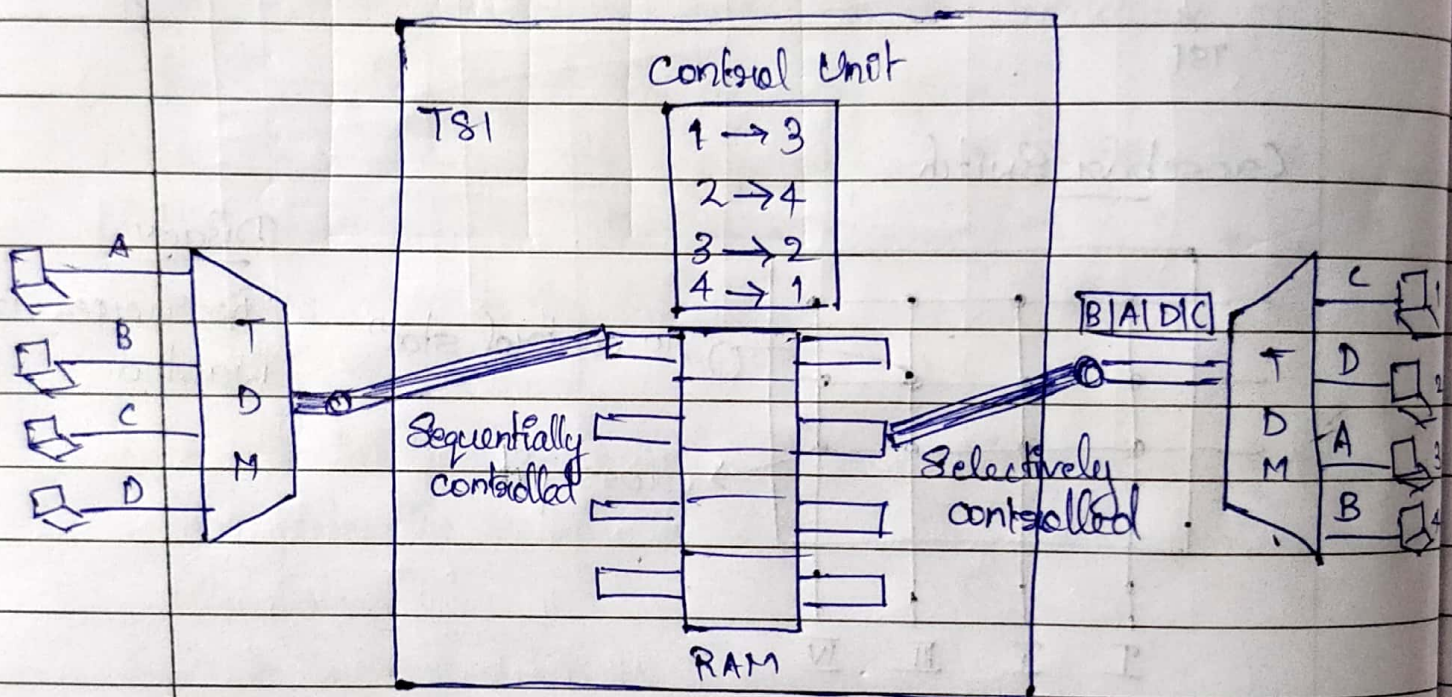 Control Unit
TSI
1 → 3
2 → 4
3 → 2
4 → 1
A
B
C
D
T
D
M
Sequentially
controlled
RAM
Selectively
controlled
B|A|D|C
T
D
M
C
D
A
B
1
2
3
4